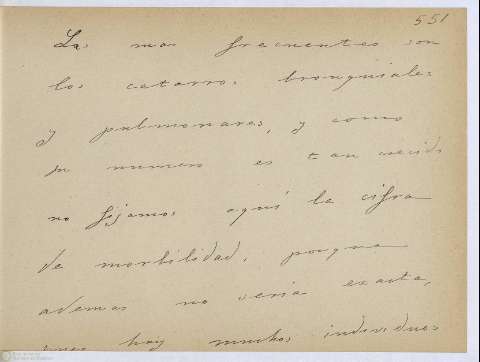 551
Las mas frecuentes son
los catarros bronquiales
y pulmonares, y como
su numero es tan crecido
no fijamos aquí la cifra
de morbilidad, porque
ademas no seria exacta,
pues hay muchos individuos